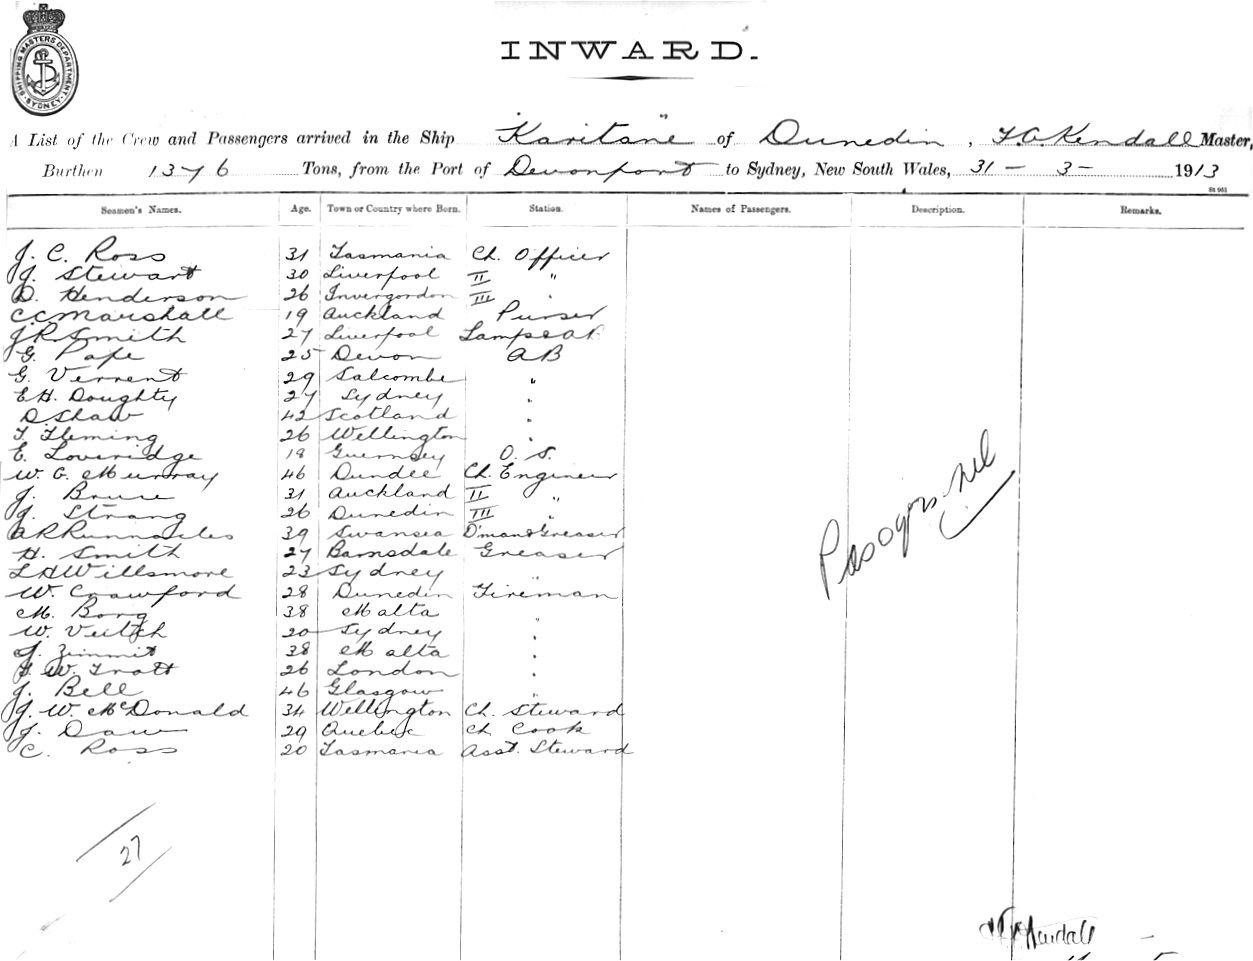 SHIPPING MASTERS DEPARTMENT SYDNEY
INWARD.
A List of the Crew and Passengers arrived in the Ship "Karitane" of Dunedin, F.A. Kendall Master,
Burthen 1376 Tons, from the Port of Devonport to Sydney, New South Wales, 31 - 3 - 1913
St 951
Seamen's Names. Age. Town or Country where Born. Station. Names of Passengers. Description. Remarks.
J. C. Ross 31 Tasmania Ch. Officer
J. Stewart 30 Liverpool II "
D. Henderson 26 Invergordon III "
C C Marshall 19 Auckland Purser
J.R. Smith 27 Liverpool Lamps & AB
G. Pape 25 Devon AB
G. Verrent 29 Salcombe "
E H. Doughty 27 Sydney "
D Shaw 42 Scotland "
T. Fleming 26 Wellington "
E. Loveridge 18 Guernsey O. S.
W. G. Murray 46 Dundee Ch. Engineer
J. Bruce 31 Auckland II "
J. Strang 26 Dunedin III "
A R Runnacles 39 Swansea D'man & Greaser
H. Smith 27 Barnsdale Greaser
L H Willsmore 23 Sydney "
W. Crawford 28 Dunedin Fireman
M. Borg 38 Malta "
W. Veitch 20 Sydney "
J. Zimmit 38 Malta "
F. W. Tratt 26 London "
J. Bell 46 Glasgow "
J. W. McDonald 34 Wellington Ch. Steward
J. Daw 29 Quebec Ch Cook
C. Ross 20 Tasmania Asst. Steward
Passgrs nil
27
Kendall